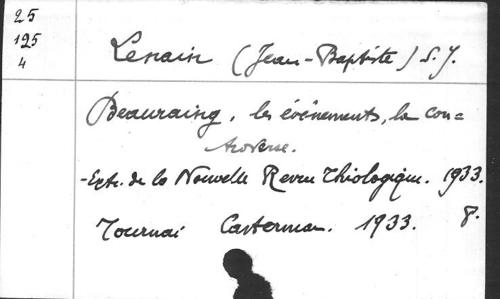 25
125
4
Lenain (Jean-Baptiste) S.J.
Beauraing, les événements, la con=
troverse.
-Extr. de la Nouvelle Revue Théologique. 1933.
Tournai Casterman. 1933. 8.